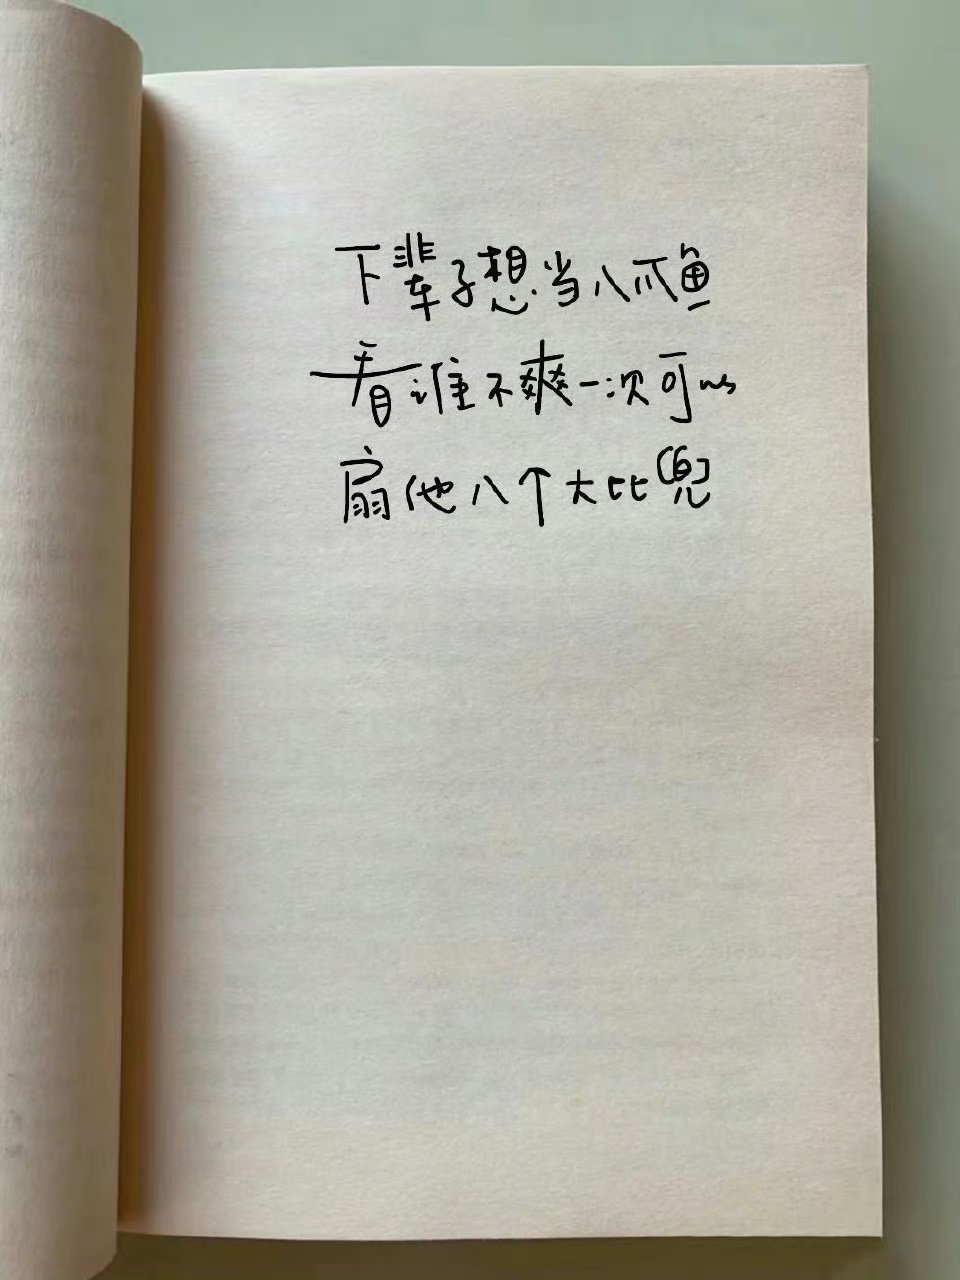 下辈子想当八爪鱼
看谁不爽一次可以
扇他八个大比兜